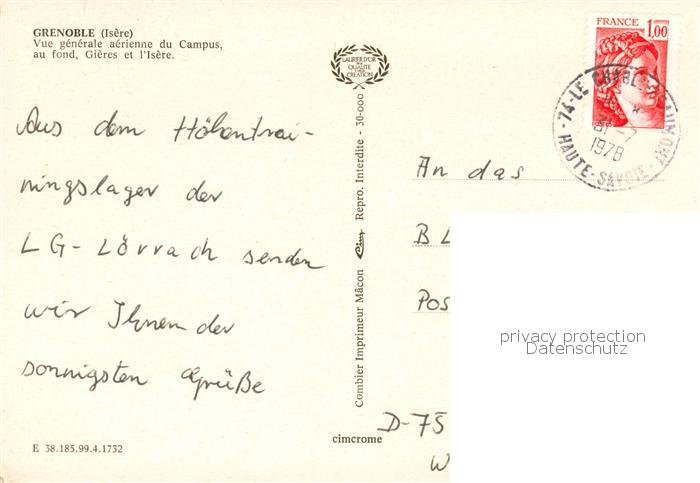 GRENOBLE (Isère)
Vue générale aérienne du Campus,
au fond, Gières et l'Isère.
LAURIER D'OR
DE LA
QUALITÉ
CRÉATION
FRANCE
1,00
74-LE CHABL
AUMONT
1978
HAUTE-SAVOIE
Aus dem Höhentrai-
ningslager der
LG-Lörrach senden
wir Ihnen der
sonnigsten Grüße
An das
BL
Pos
D-75
W
privacy protection
Datenschutz
Combier Imprimeur Mâcon Cim Repro. Interdite - 30-000
cimcrome
E 38.185.99.4.1732